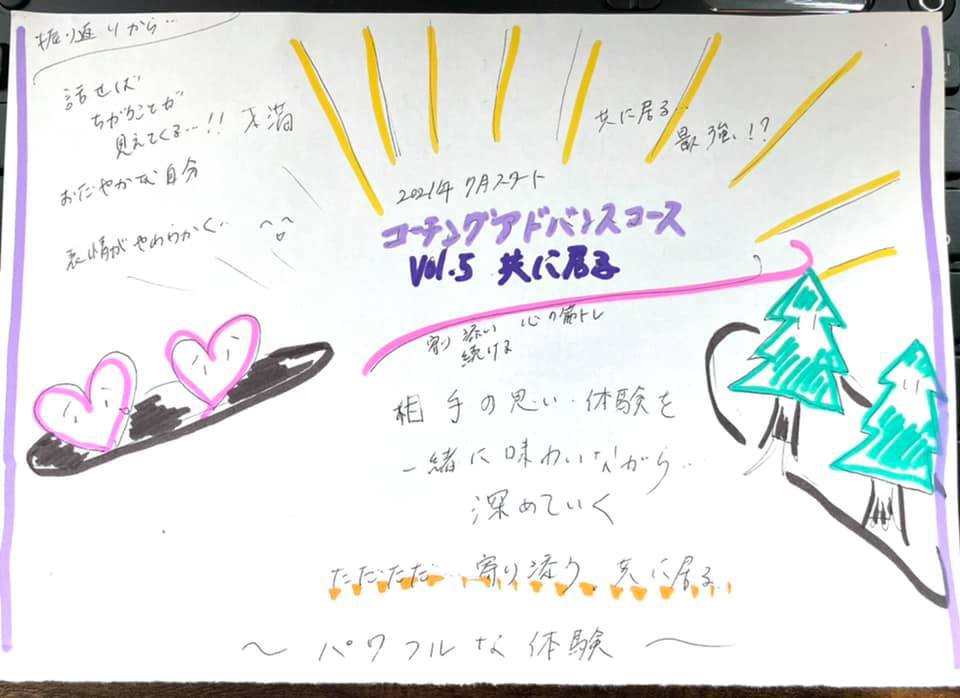 振り返りから…
話せば
ちがうことが
見えてくる…!!
おだやかな自分
表情がやわらかく…
共に居る…
最強!?
2021年 7月スタート
コーチングアドバンスコース
Vol.5 共に居る
寄り添い 心の筋トレ
続ける
相手の思い・体験を
一緒に味わいながら…
深めていく
ただただ…寄り添う、共に居る…
〜 パワフルな体験 〜